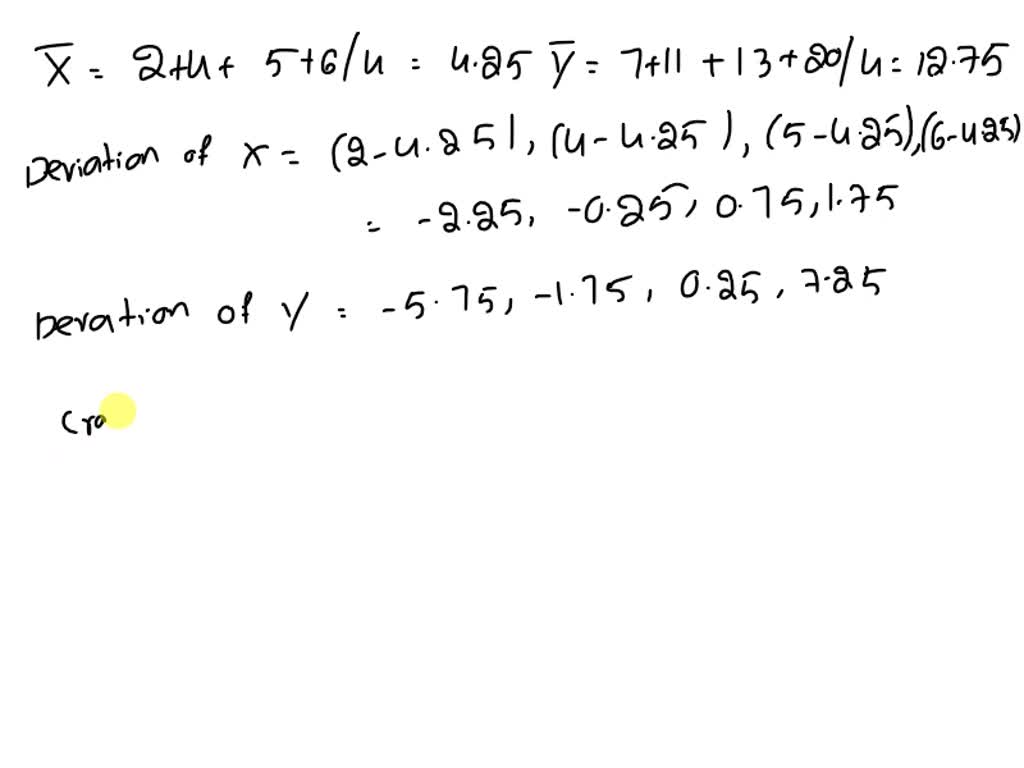 X̄ = 2+4+ 5+6/4 = 4.25 Ȳ = 7+11 +13+20/4 = 12.75
Deviation of X = (2-4.25), (4-4.25), (5-4.25), (6-4.25)
= -2.25, -0.25, 0.75, 1.75
Devation of Y = -5.75, -1.75, 0.25, 7.25
Cro